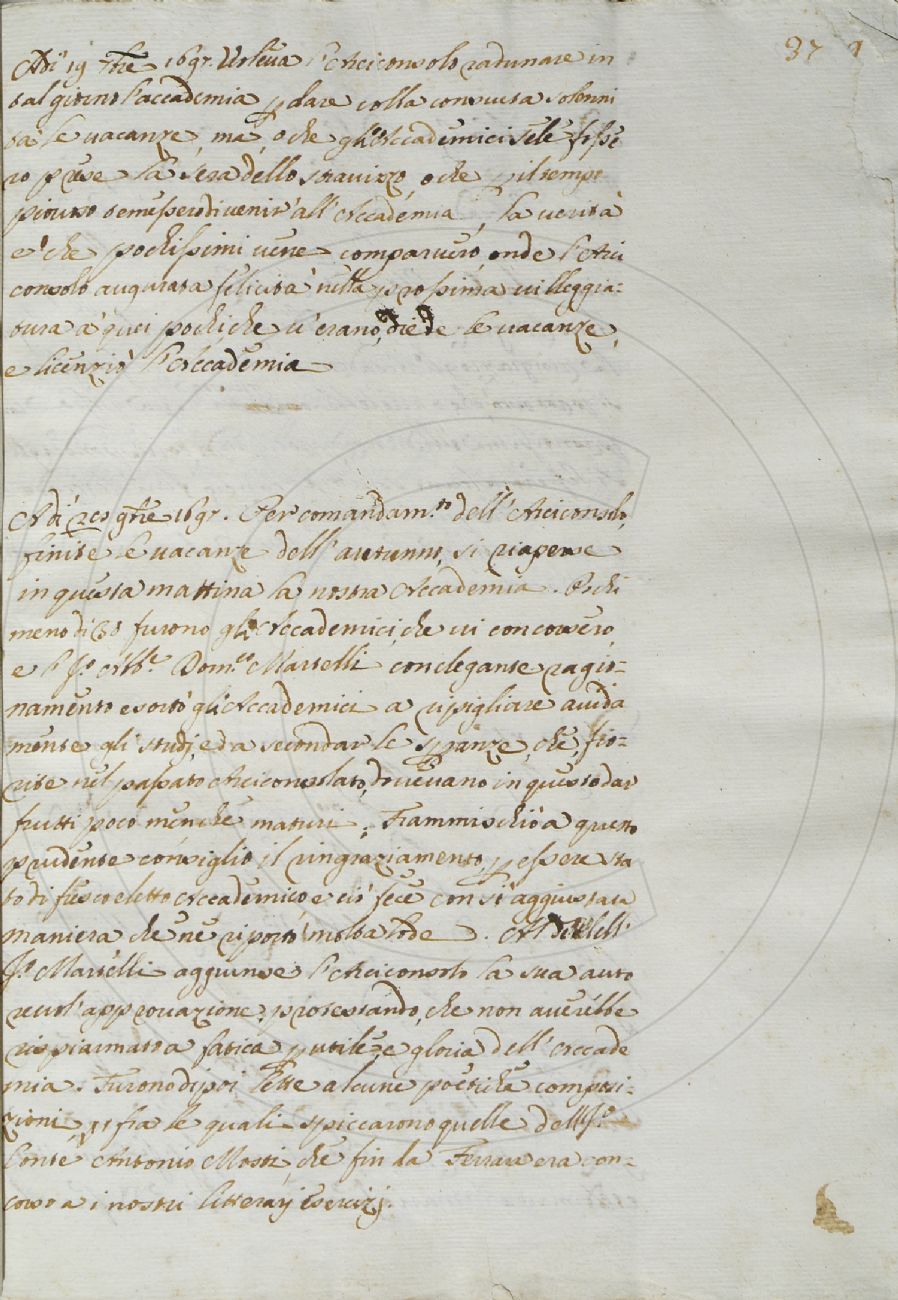 37
Adì 19 7bre 1697. Voleva l'Arciconsolo radunare in
tal giorno l'accademia p dare colla consueta solenni
tà le vacanze, ma, o che gli Accademici se le fosse
ro prese la sera dello stravizzo, o che p il tempo
piovoso temessero di venir' all'Accademia, la verità
e' che pochissimi vene comparvero, onde l'Arci
consolo augurata felicità nella prossima villeggia-
tura a' quei pochi, che v'erano, diede le vacanze,
e licenziò l'Accademia
Adì 9bre 1697. Per comandam.to dell'Arciconsolo,
finite le vacanze dell'autunno, si riaperse
in questa mattina la nostra Accademia. Pochi
meno di 30 furono gli Accademici, che vi concorsero,
e l' S.r Ab.e Dom.co Martelli con elegante ragio-
namento esortò gli Accademici a ripigliare avida
mente gli studj, ed a secondar le speranze, che, fio-
rite nel passato Arciconsolato, dovevano in questo dar
frutti poco men che maturi. Frammischiò a questo
prudente consiglio il ringraziamento p essere sta
to di fresco eletto Accademico, e ciò fece con sì aggiustata
maniera che ne riportò molta lode. dell
S.r Martelli aggiunse l'Arciconsolo la sua auto
revol' approvazione, protestando, che non averebbe
rispiarmato a fatica p utile, e gloria dell'Accade
mia. Furono dipoi lette alcune poetiche composi-
zioni, fra le quali spiccarono quelle dell S.r
Conte Antonio Mosti, che fin da Ferrara era con-
corso a i nostri litterarj Esercizj.